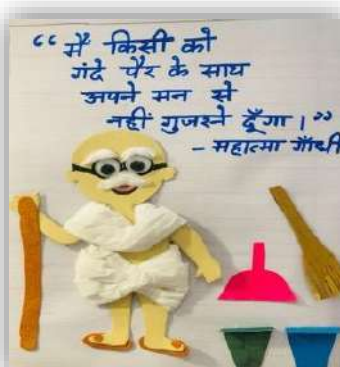 “ मैं किसी को
गंदे पैर के साथ
अपने मन से
नहीं गुजरने दूँगा।”
- महात्मा गाँधी